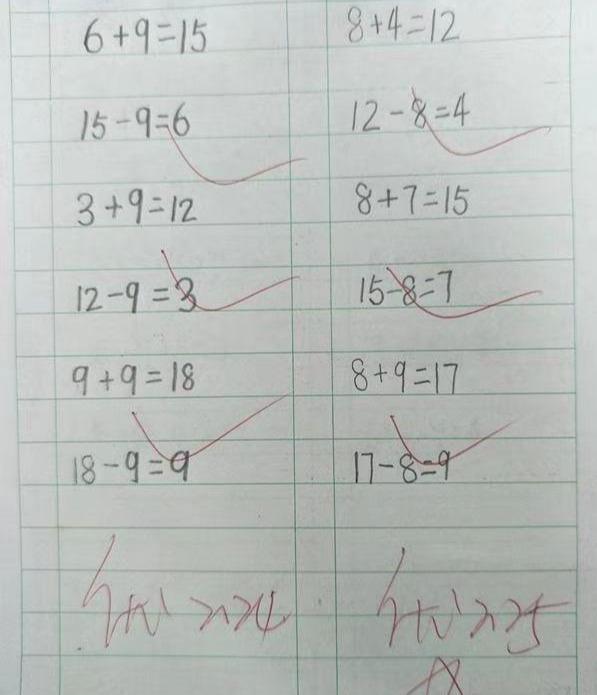 6+9=15
8+4=12
15-9=6
12-8=4
3+9=12
8+7=15
12-9=3
15-8=7
9+9=18
8+9=17
18-9=9
17-8=9